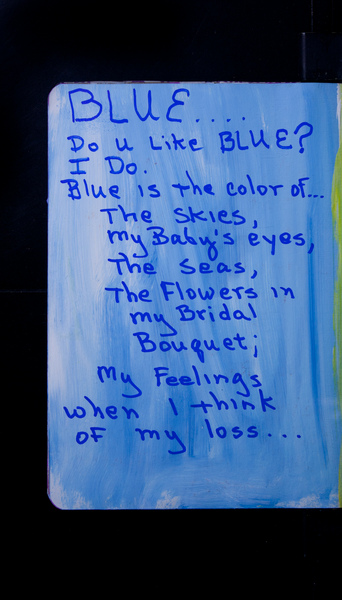 BLUE....
Do u Like BLUE?
I Do.
Blue is the color of...
The Skies,
my Baby's eyes,
The Seas,
The Flowers in
my Bridal
Bouquet;
My Feelings
when I think
of my loss...